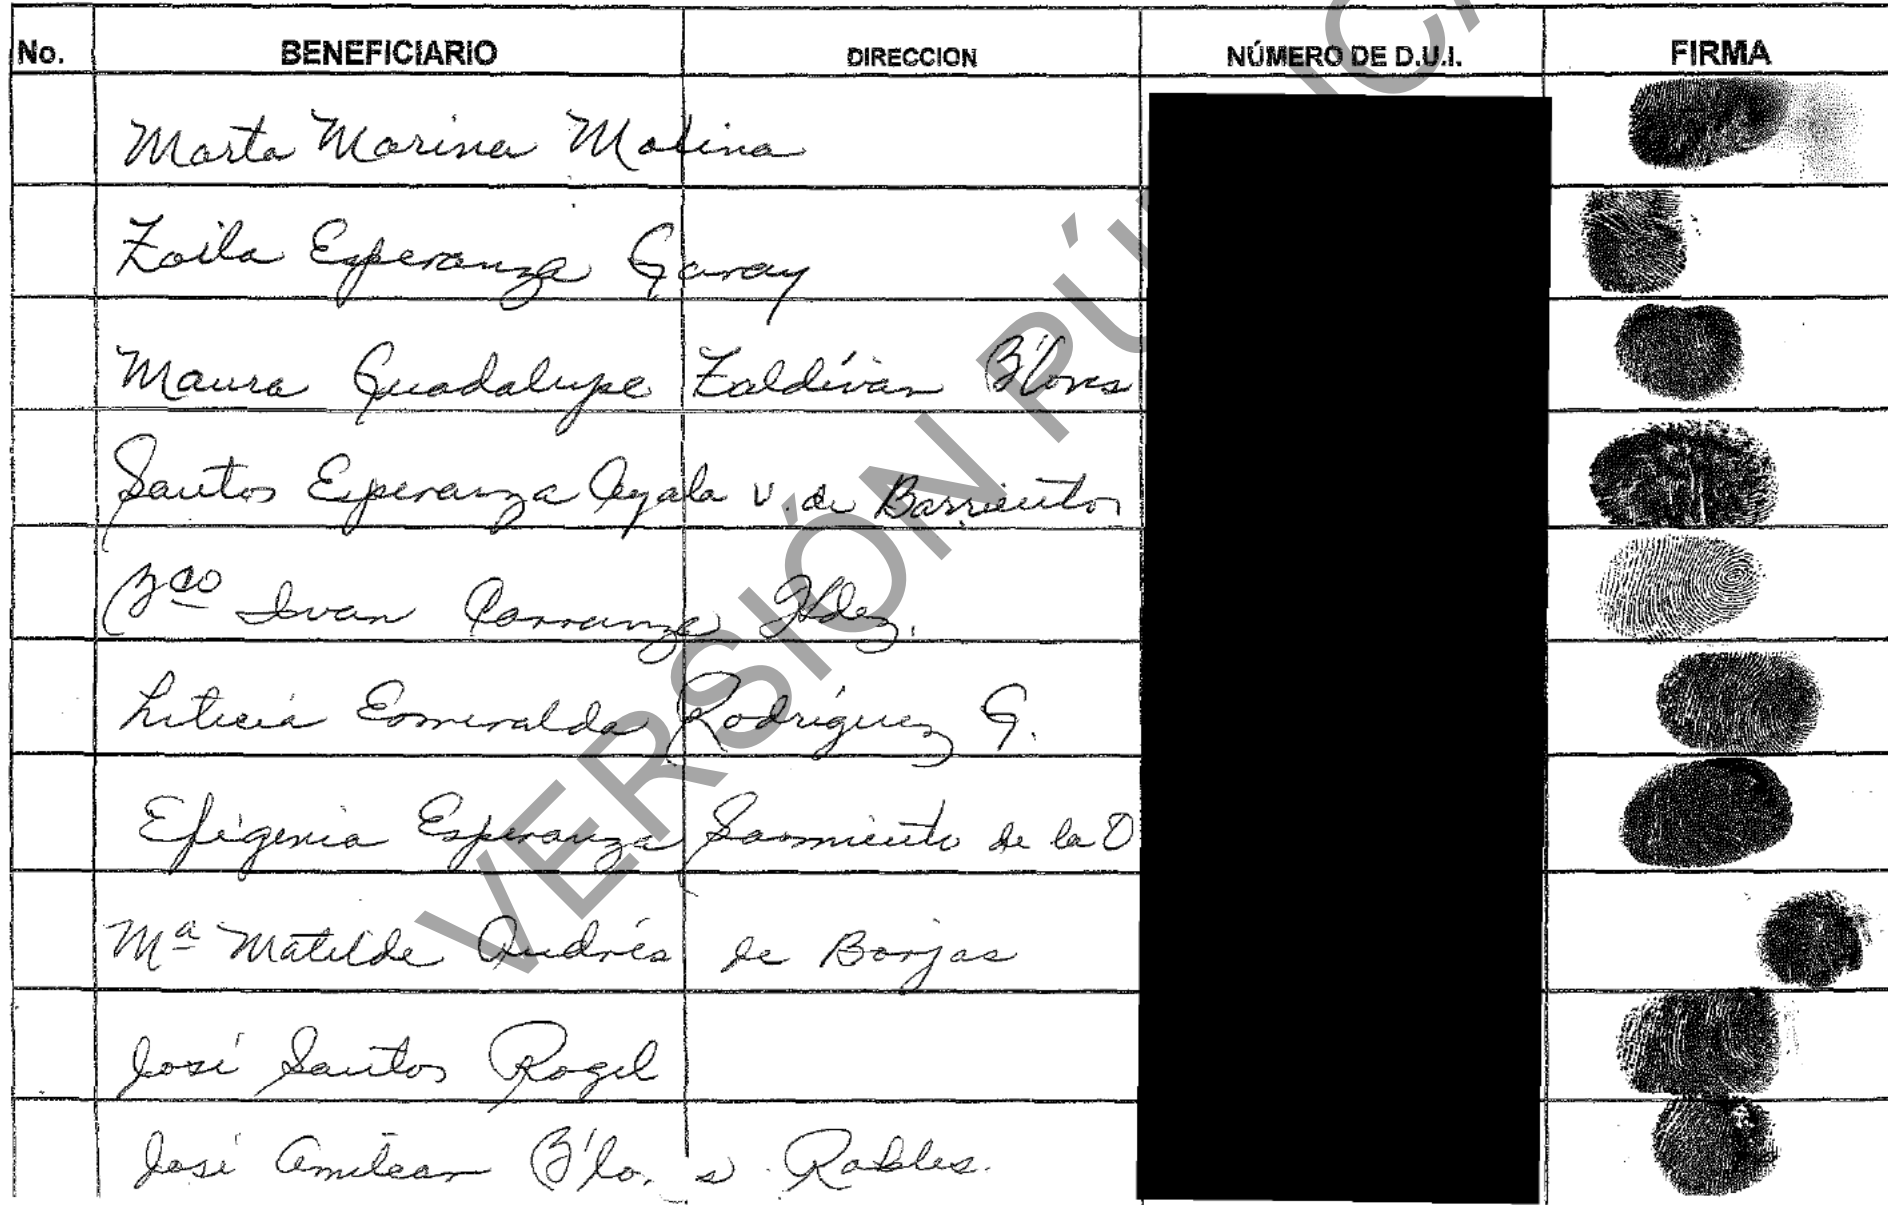 No. BENEFICIARIO DIRECCION NÚMERO DE D.U.I. FIRMA
Marta Marina Molina
Zoila Esperanza Garay
Maura Guadalupe Zaldívar Flores
Santos Esperanza Ayala v. de Barrientos
Fco Ivan Carranza Hdez.
Leticia Esmeralda Rodríguez G.
Efigenia Esperanza Sarmiento de la O
Mª Matilde Andrés de Borjas
José Santos Rogel
José Amilcar Robles.
VERSIÓN